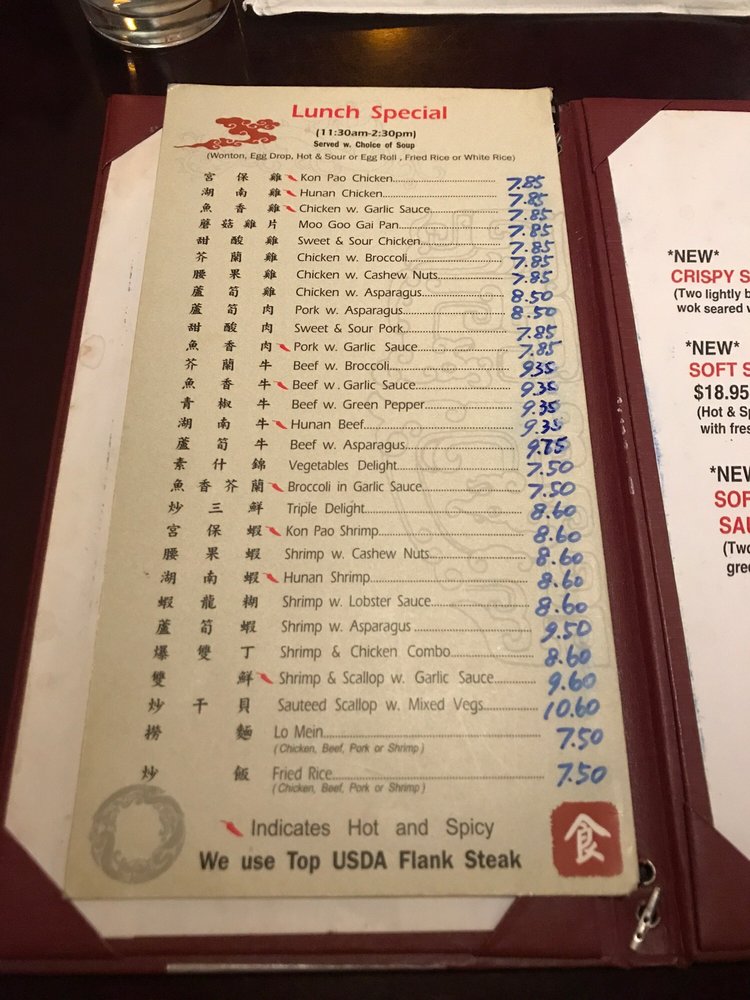 Lunch Special
(11:30am-2:30pm)
Served w. Choice of Soup
(Wonton, Egg Drop, Hot & Sour or Egg Roll , Fried Rice or White Rice)
宮 保 雞 Kon Pao Chicken 7.85
湖 南 雞 Hunan Chicken 7.85
魚 香 雞 Chicken w. Garlic Sauce 7.85
蘑 菇 雞 片 Moo Goo Gai Pan 7.85
甜 酸 雞 Sweet & Sour Chicken 7.85
芥 蘭 雞 Chicken w. Broccoli 7.85
腰 果 雞 Chicken w. Cashew Nuts 7.85
蘆 筍 雞 Chicken w. Asparagus 8.50
蘆 筍 肉 Pork w. Asparagus 8.50
甜 酸 肉 Sweet & Sour Pork 7.85
魚 香 肉 Pork w. Garlic Sauce 7.85
芥 蘭 牛 Beef w. Broccoli 9.35
魚 香 牛 Beef w. Garlic Sauce 9.35
青 椒 牛 Beef w. Green Pepper 9.35
湖 南 牛 Hunan Beef 9.35
蘆 筍 牛 Beef w. Asparagus 9.75
素 什 錦 Vegetables Delight 7.50
魚 香 芥 蘭 Broccoli in Garlic Sauce 7.50
炒 三 鮮 Triple Delight 8.60
宮 保 蝦 Kon Pao Shrimp 8.60
腰 果 蝦 Shrimp w. Cashew Nuts 8.60
湖 南 蝦 Hunan Shrimp 8.60
蝦 龍 糊 Shrimp w. Lobster Sauce 8.60
蘆 筍 蝦 Shrimp w. Asparagus 9.50
爆 雙 丁 Shrimp & Chicken Combo 8.60
雙 鮮 Shrimp & Scallop w. Garlic Sauce 9.60
炒 干 貝 Sauteed Scallop w. Mixed Vegs 10.60
撈 麵 Lo Mein 7.50
(Chicken, Beef, Pork or Shrimp)
炒 飯 Fried Rice 7.50
(Chicken, Beef, Pork or Shrimp)
Indicates Hot and Spicy
We use Top USDA Flank Steak
食
*NEW*
CRISPY S
(Two lightly b
wok seared w
*NEW*
SOFT S
$18.95
(Hot & Sp
with fres
*NEW
SOF
SAU
(Two
gree